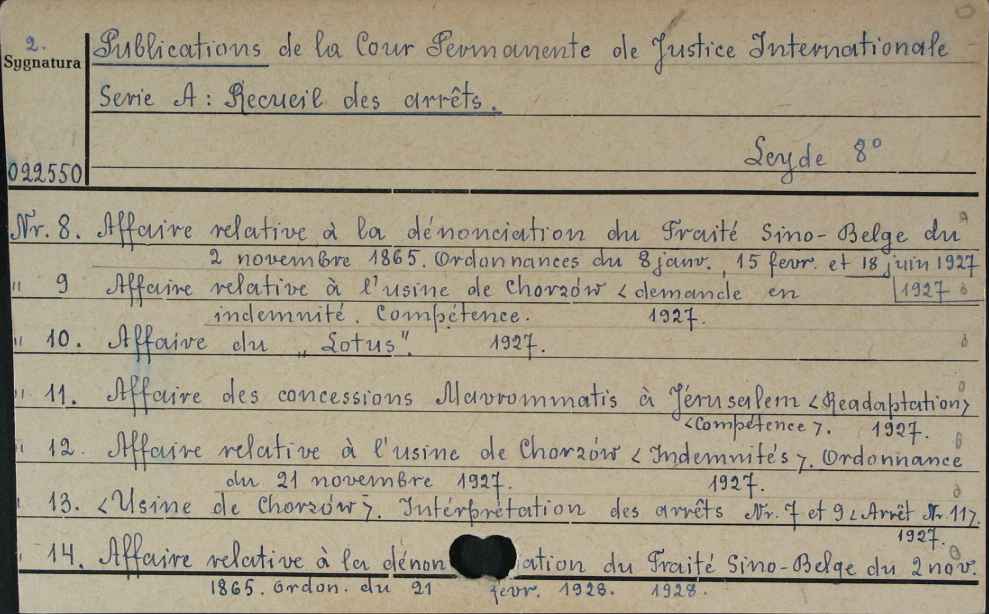 2.
Sygnatura
022550
Publications de la Cour Permanente de Justice Internationale
Serie A: Recueil des arrêts.
Leyde 8°
Nr. 8. Affaire relative à la dénonciation du Traité Sino-Belge du
2 novembre 1865. Ordonnances du 8 janv., 15 fevr. et 18 juin 1927
1927
" 9 Affaire relative à l'usine de Chorzów < demande en
indemnité. Compétence. 1927.
" 10. Affaire du „Lotus". 1927.
" 11. Affaire des concessions Mavrommatis à Jérusalem <Readaptation>
<Compétence>. 1927.
" 12. Affaire relative à l'usine de Chorzów <Indemnités>. Ordonnance
du 21 novembre 1927. 1927.
" 13. <Usine de Chorzów>. Intérprétation des arrêts Nr. 7 et 9 <Arrêt Nr. 11>.
1927.
" 14. Affaire relative à la dénon ation du Traité Sino-Belge du 2 nov.
1865. Ordon. du 21 fevr. 1928. 1928.